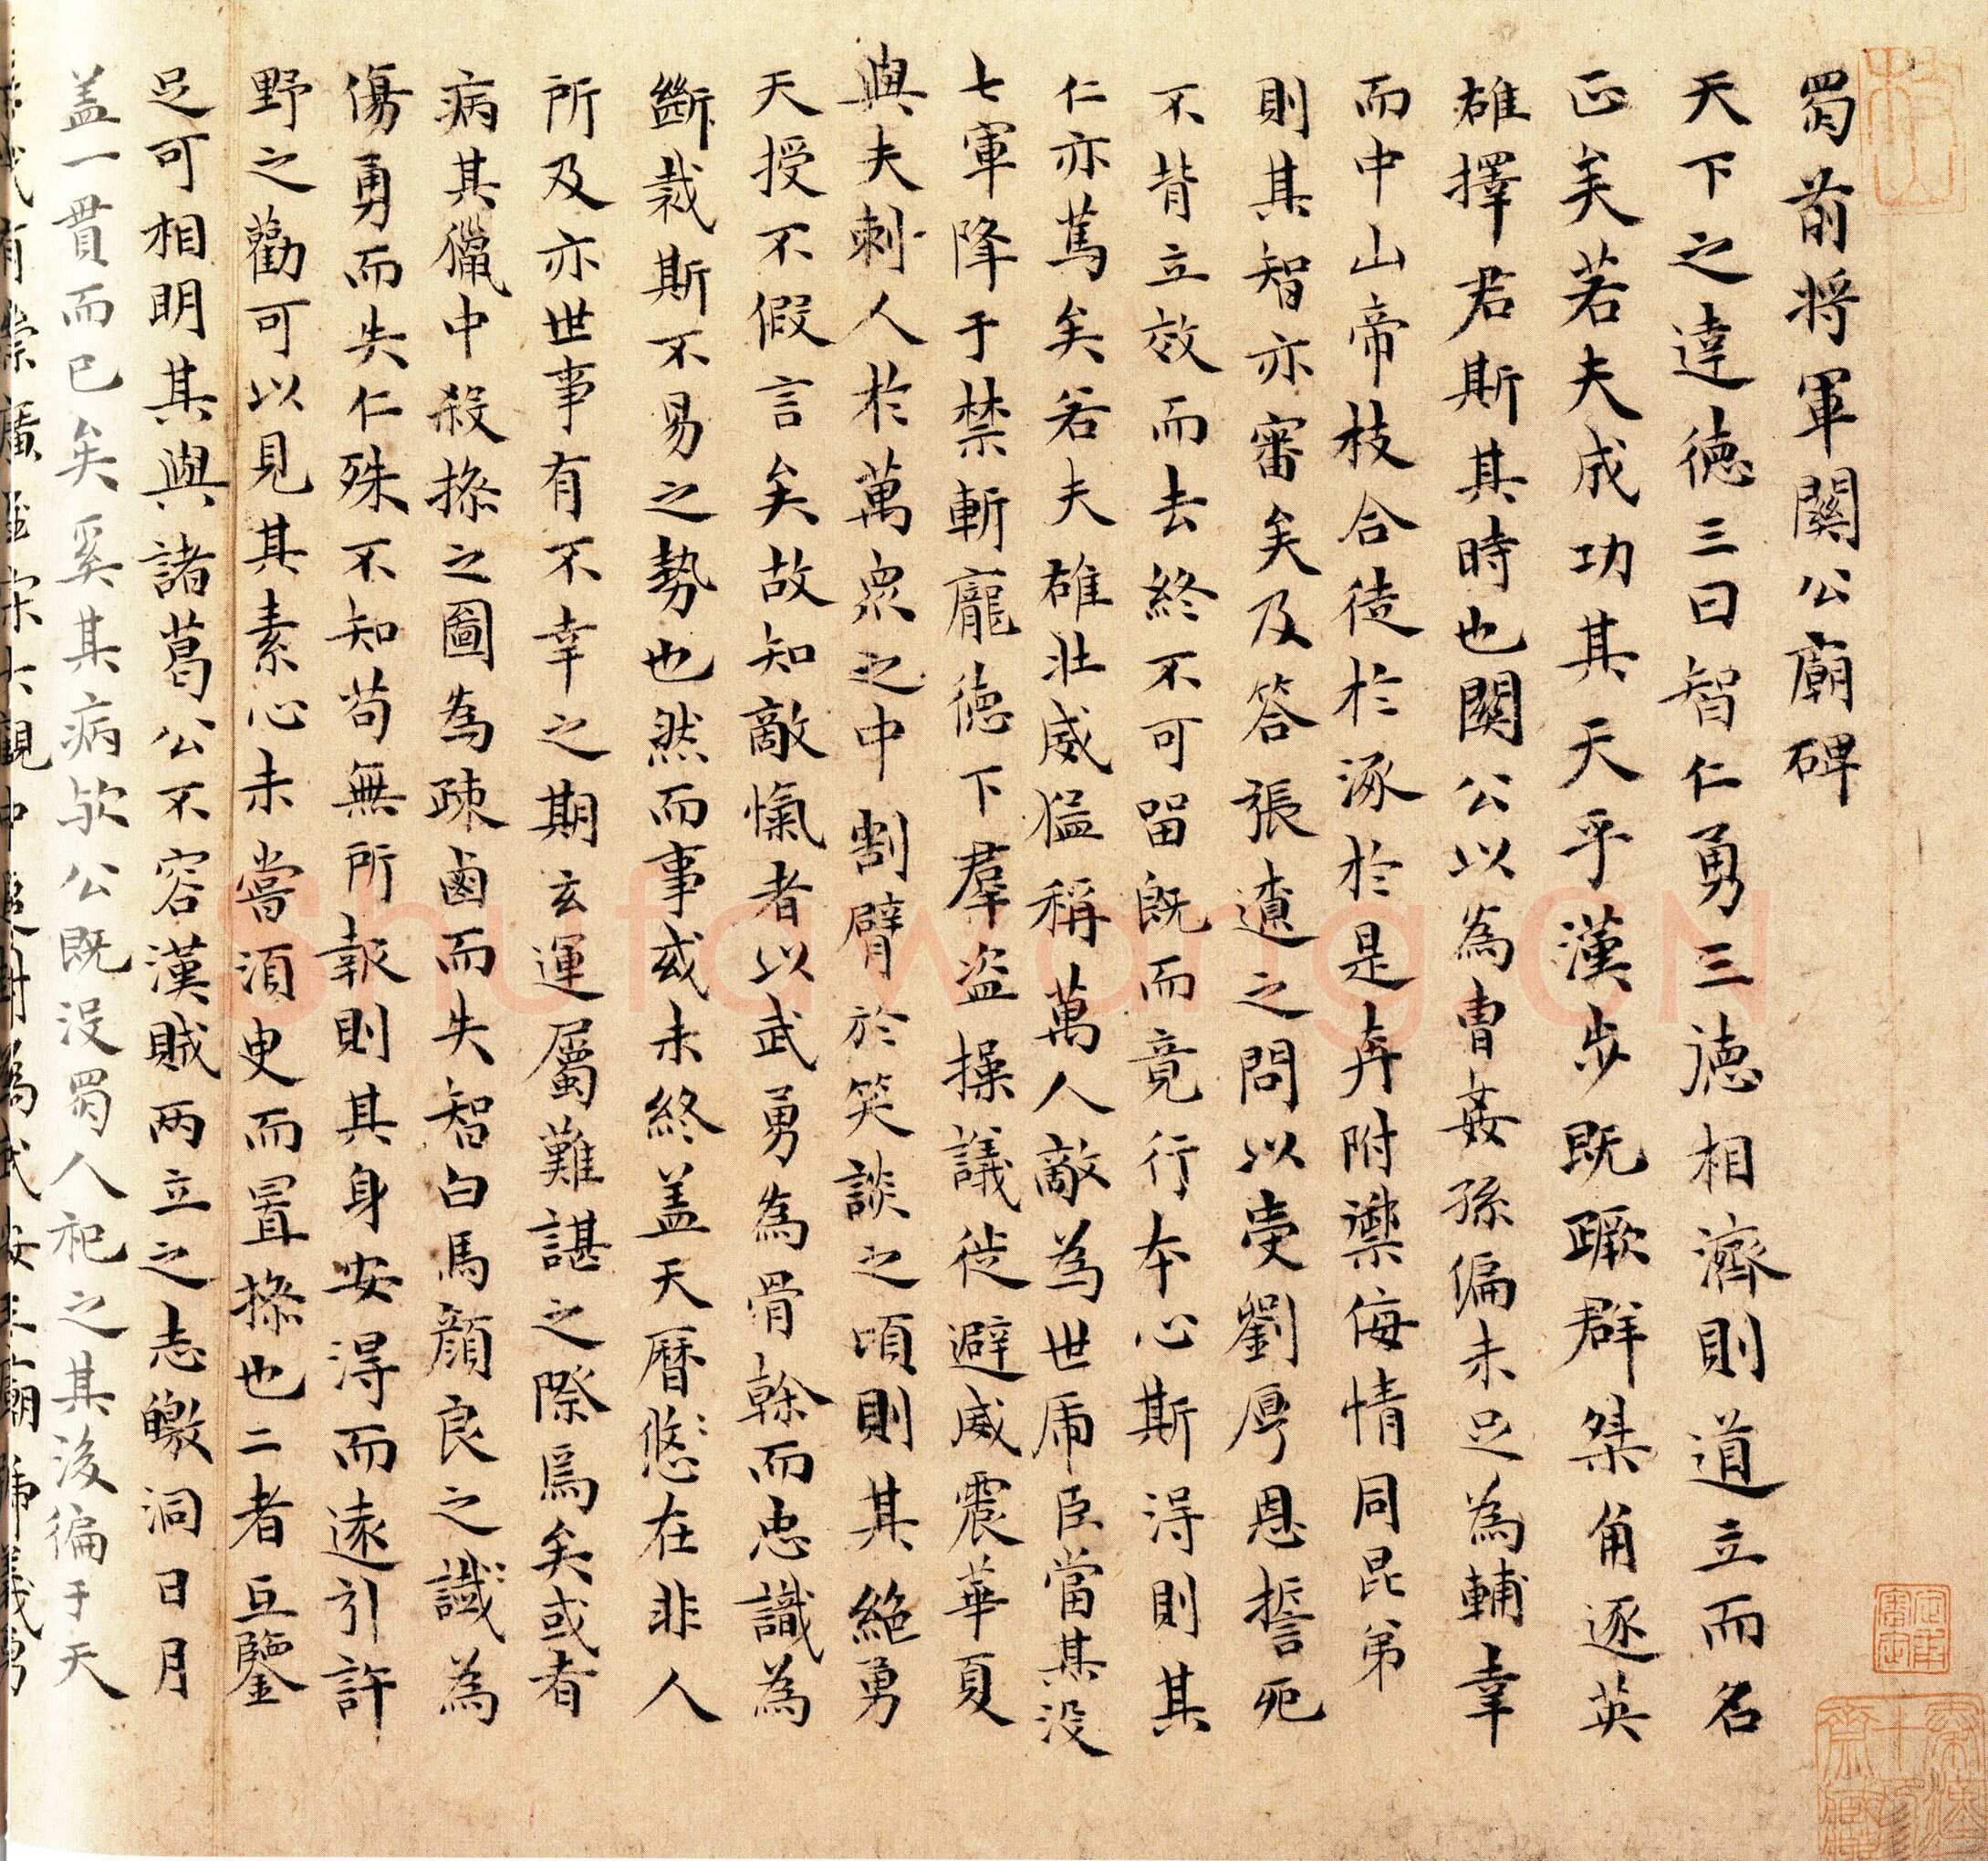 蜀前将軍關公廟碑
天下之達德三曰智仁勇三德相濟則道立而名
正美若夫成功其天乎漢步既蹶群桀角逐英
雄擇君斯其時也關公以為曹姦孫偏未足為輔幸
而中山帝枝合徒於涿於是奔附禦侮情同昆弟
則其智亦審矣及答張遼之問以受劉厚恩誓死
不背立效而去終不可留既而竟行本心斯得則其
仁亦篤矣若夫雄壯威猛稱萬人敵為世虎臣當其没
七軍降于禁斬龐德下羣盗操議徙避威震華夏
與夫刺人於萬衆之中割臂於笑談之頃則其絶勇
天授不假言矣故知敵愾者以武勇為骨榦而忠識為
斷裁斯不易之勢也然而事或未終盖天曆悠悠在非人
所及亦世事有不幸之期玄運屬難諶之際焉矣或者
病其獵中殺操之圖為疎鹵而失智白馬顔良之誠為
傷勇而失仁殊不知苟無所報則其身安得而遠引許
野之勸可以見其素心未嘗須臾而置操也二者互鑒
足可相明其與諸葛公不容漢賊两立之志皦洞日月
盖一貫而已矣奚其病欤公既没蜀人祀之其後徧于天